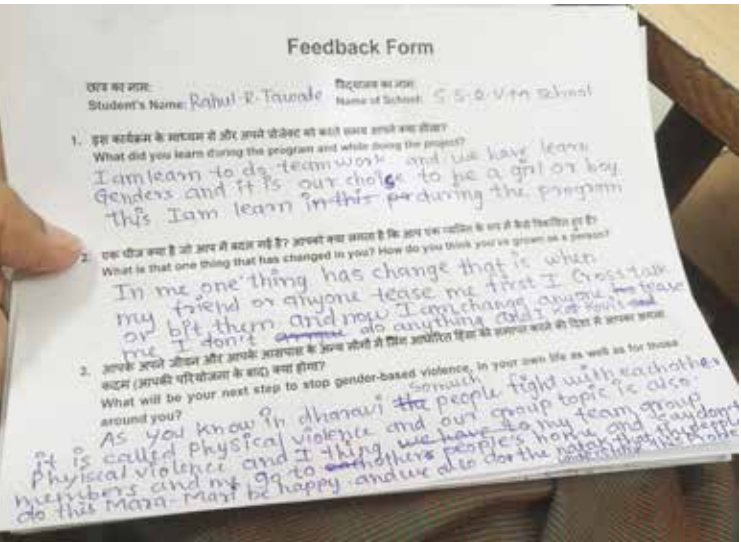 Feedback Form
छात्र का नाम: विद्यालय का नाम:
Student's Name: Rahul R. Tawade Name of School: S.S.Q.V.M School
1. इस कार्यक्रम के माध्यम से और अपने प्रोजेक्ट को करते समय आपने क्या सीखा?
What did you learn during the program and while doing the project?
I am learn to do team work and we have learn
Genders and it is our choise to be a girl or boy
this I am learn in this during the program
2. एक चीज क्या है जो आप में बदल गई है? आपको क्या लगता है कि आप एक व्यक्ति के रूप में कैसे विकसित हुए हैं?
What is that one thing that has changed in you? How do you think you've grown as a person?
In me one thing has change that is when
my friend or anyone tease me first I Cross talk
or bit them and now I am change anyone tease
me I don't do anything and I
3. आपके अपने जीवन और आपके आसपास के अन्य लोगों में लिंग आधारित हिंसा को समाप्त करने की दिशा में आपका अगला
कदम (आपकी परियोजना के बाद) क्या होगा?
What will be your next step to stop gender-based violence, in your own life as well as for those
around you?
As you know in dharavi the somuch people fight with eachother
it is called physical violence and our group topic is also
Phyiscal violence and I thing we have to my team group
members and my go to others people's home and
do this Mara-Mari be happy and we also do the natak that